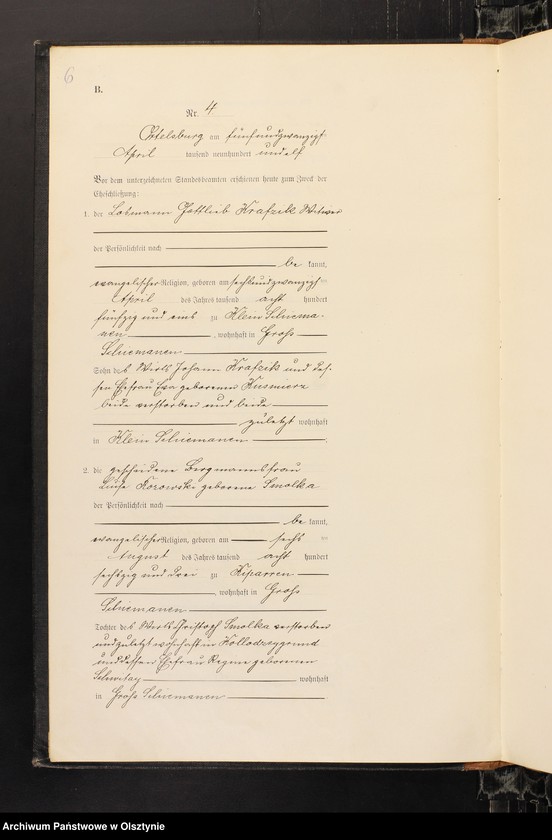 6
B.
Nr. 4
Ortelsburg am fünfundzwanzigst
April tausend neunhundert und elf
Vor dem unterzeichneten Standesbeamten erschienen heute zum Zweck der
Eheschließung:
1. der Losmann Gottlieb Krafzik Witwer
der Persönlichkeit nach
be kannt,
evangelischer Religion, geboren am sechsundzwanzigst
April des Jahres tausend acht hundert
fünfzig und eins zu Klein Schiema-
nen, wohnhaft in Gross
Schiemanen
Sohn des Wirts Johann Krafzik und des-
sen Ehefrau Eva geborenen
beide verstorben und beide
zuletzt wohnhaft
in Klein Schiemanen.
2. die geschiedene Bergmannsfrau
Luise Korowski geborene Smolka
der Persönlichkeit nach
be kannt,
evangelischer Religion, geboren am sechs ten
August des Jahres tausend acht hundert
sechszig und drei zu Kiparren
, wohnhaft in Gross
Schiemanen
Tochter des Wirts Christoph Smolka verstorben
und zuletzt wohnhaft in Kollodzeygrund
und dessen Ehefrau Regine geborenen
wohnhaft
in Gross Schiemanen
Archiwum Państwowe w Olsztynie